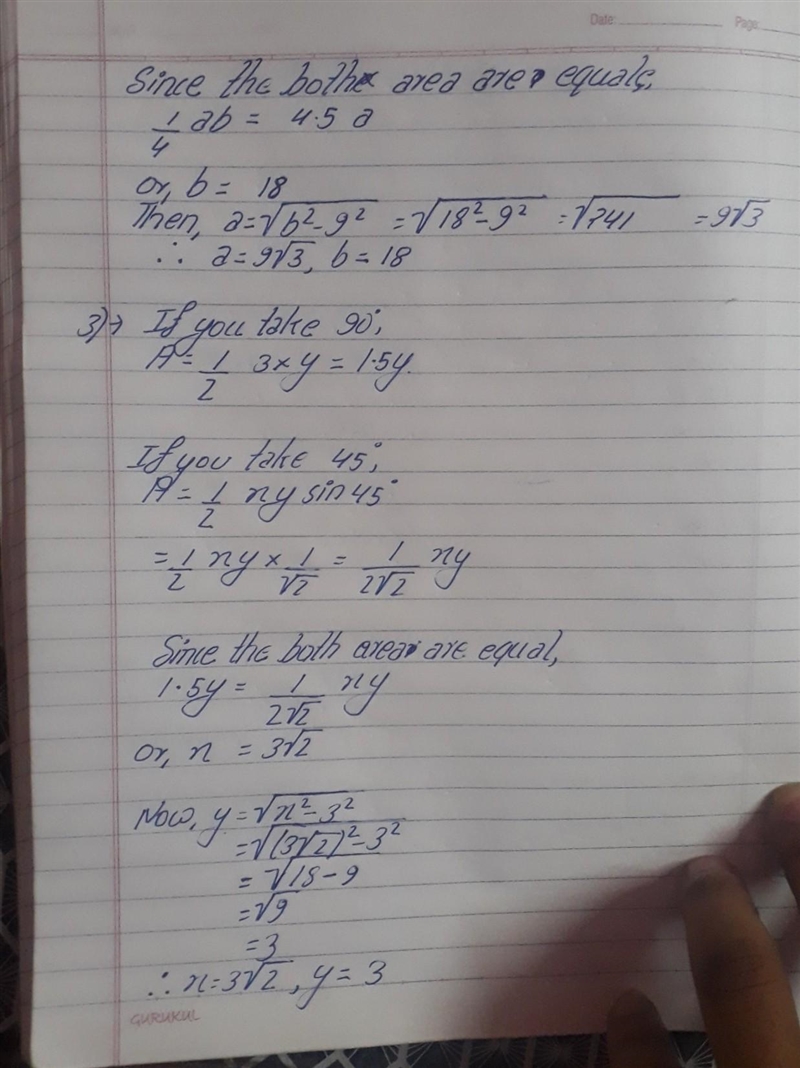 Date: Page:
Since the both area are equals,
1/4 ab = 4.5 a
or, b = 18
Then, a = √(b² - 9²) = √(18² - 9²) = √741 = 9√3
∴ a = 9√3, b = 18
3)→ If you take 90°,
A = 1/2 3 × y = 1.5y.
If you take 45°,
A = 1/2 xy sin 45°
= 1/2 xy × 1/√2 = 1/2√2 xy
Since the both area are equal,
1.5y = 1/2√2 xy
or, x = 3√2
Now, y = √(x² - 3²)
= √((3√2)² - 3²)
= √(18 - 9)
= √9
= 3
∴ x = 3√2, y = 3
GURUKUL